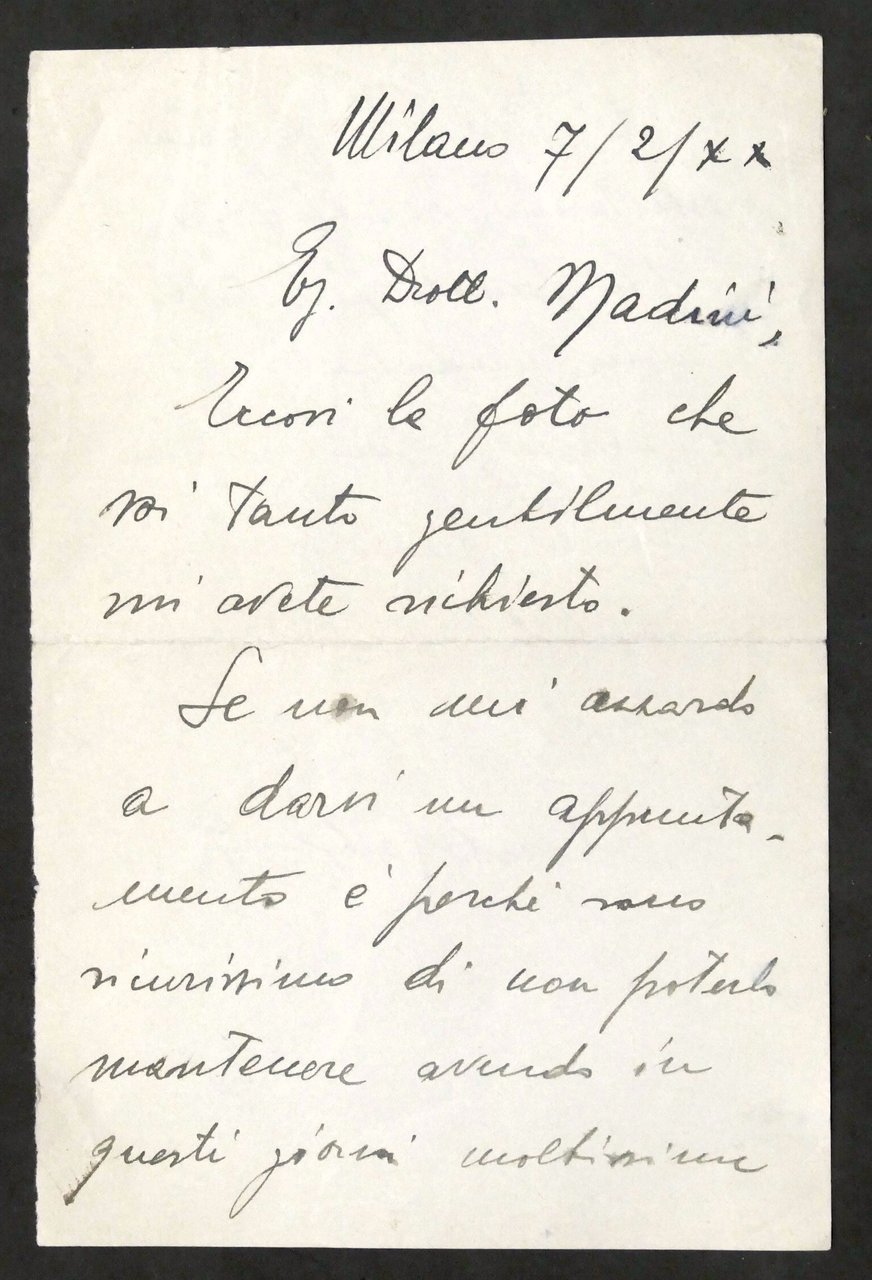 Milano 7/2/XX
Eg. Dott. Madini,
Eccovi le foto che
voi tanto gentilmente
mi avete richiesto.
Se non mi azzardo
a darvi un appunta-
mento è perché sono
sicurissimo di non poterlo
mantenere avendo in
questi giorni moltissime